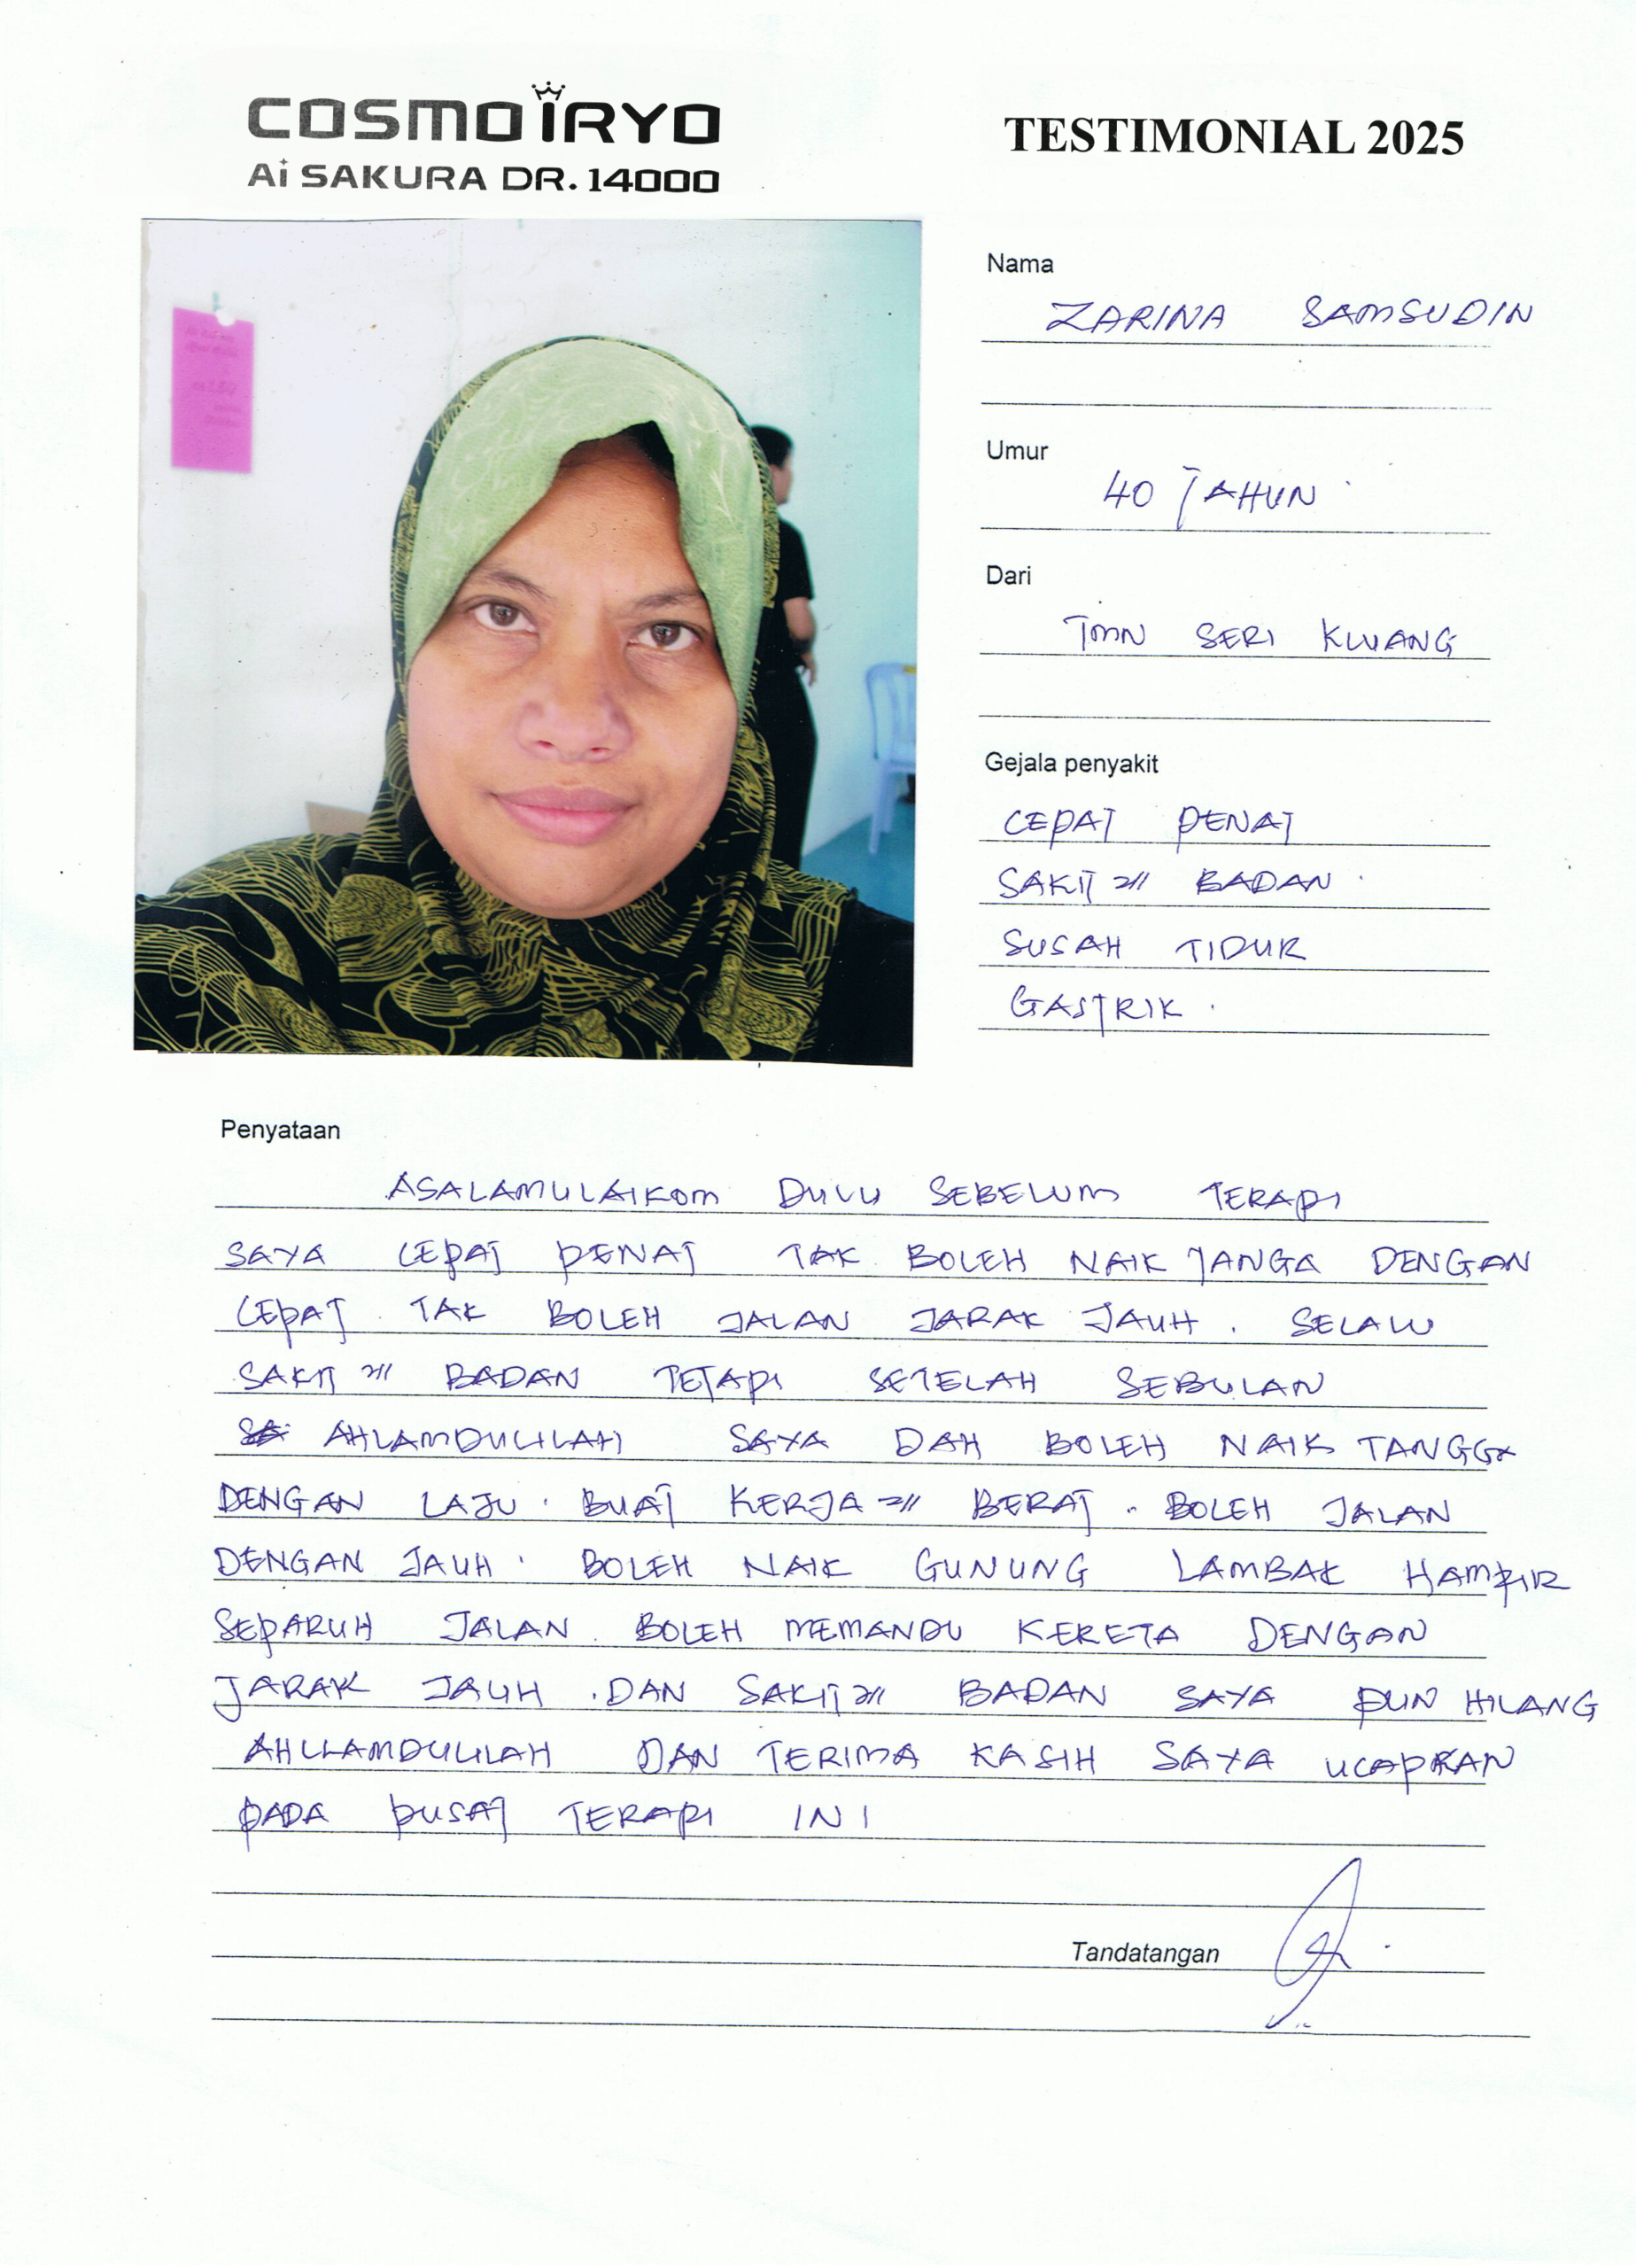 COSMO IRYO
Ai SAKURA DR. 14000
TESTIMONIAL 2025
Nama
ZARINA SAMSUDIN
Umur
40 TAHUN
Dari
TMN SERI KLUANG
Gejala penyakit
CEPAT PENAT
SAKIT2 BADAN
SUSAH TIDUR
GASTRIK.
Penyataan
ASALAMULAIKOM DULU SEBELUM TERAPI
SAYA CEPAT PENAT TAK BOLEH NAIK TANGA DENGAN
CEPAT TAK BOLEH JALAN JARAK JAUH. SELALU
SAKIT2 BADAN TETAPI SETELAH SEBULAN
AHLAMDULILAH SAYA DAH BOLEH NAIK TANGGA
DENGAN LAJU. BUAT KERJA2 BERAT. BOLEH JALAN
DENGAN JAUH. BOLEH NAIK GUNUNG LAMBAK HAMPIR
SEPARUH JALAN. BOLEH MEMANDU KERETA DENGAN
JARAK JAUH. DAN SAKIT2 BADAN SAYA PUN HILANG
AHLLAMDULILAH DAN TERIMA KASIH SAYA UCAPKAN
PADA PUSAT TERAPI INI
Tandatangan